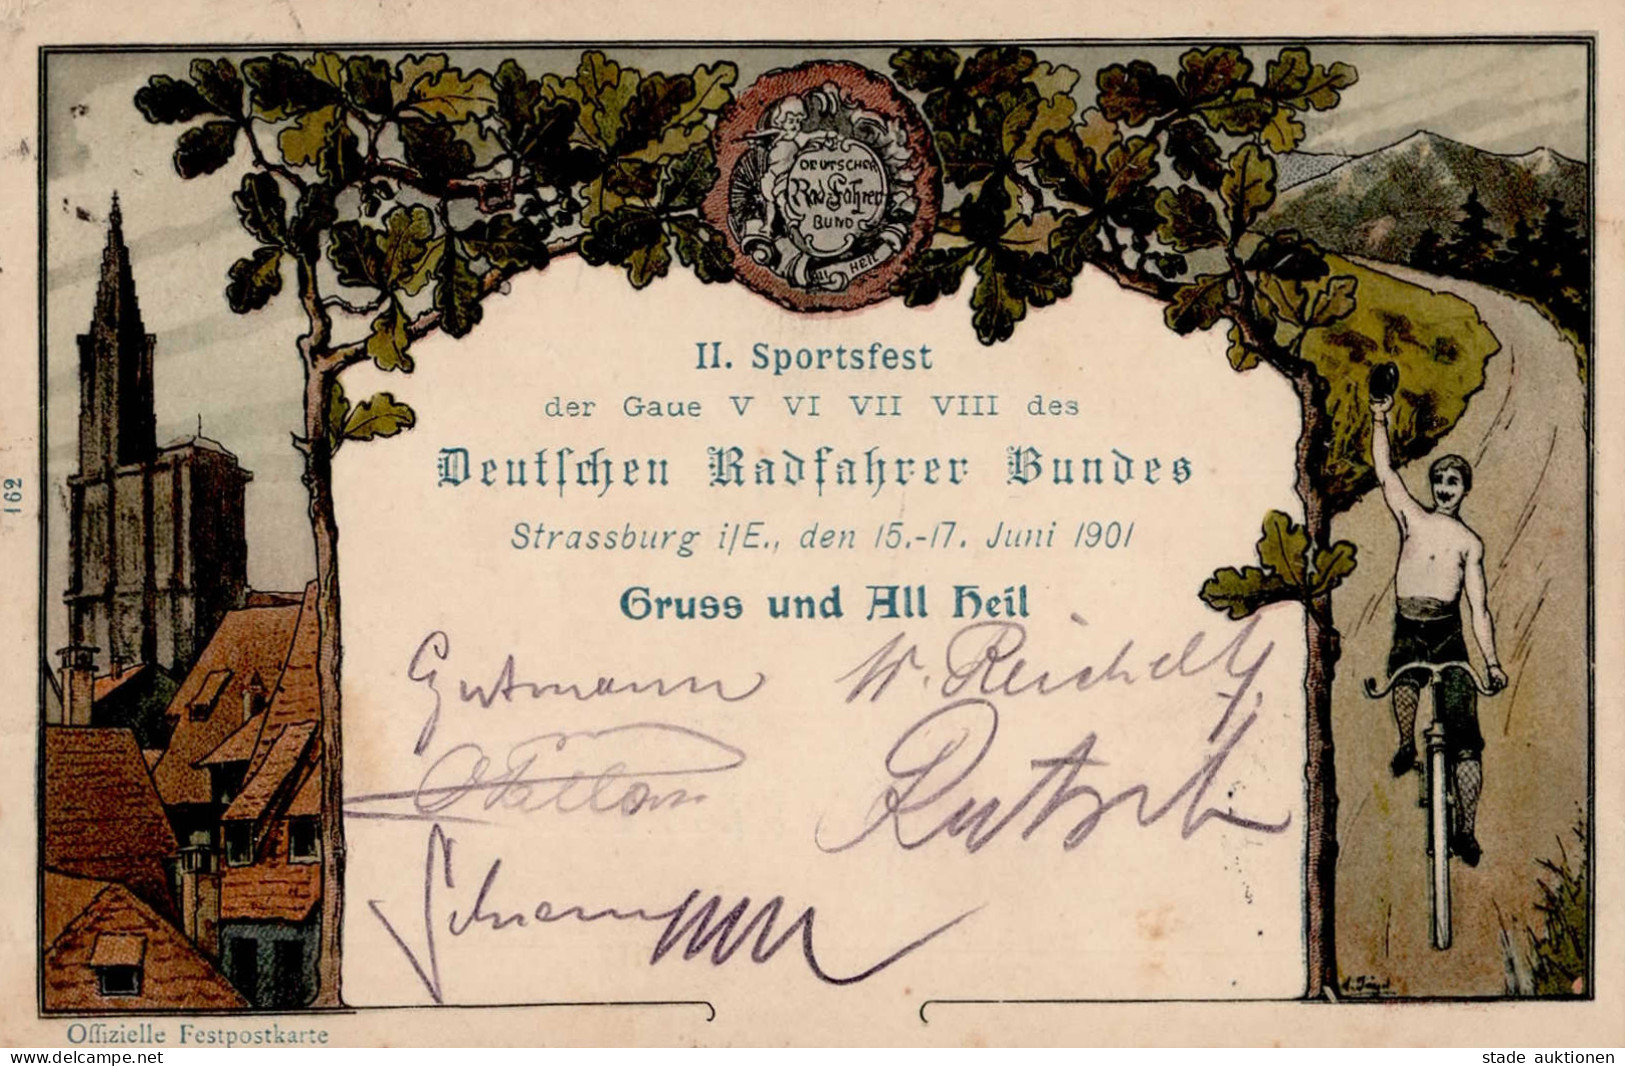 DEUTSCHER
Rad-Fahrer
BUND
All HEIL
II. Sportsfest
der Gaue V VI VII VIII des
Deutschen Radfahrer Bundes
Strassburg i/E., den 15.-17. Juni 1901
Gruss und All Heil
Gutmann W. Reichelt
162
Offizielle Festpostkarte
www.delcampe.net
stade auktionen